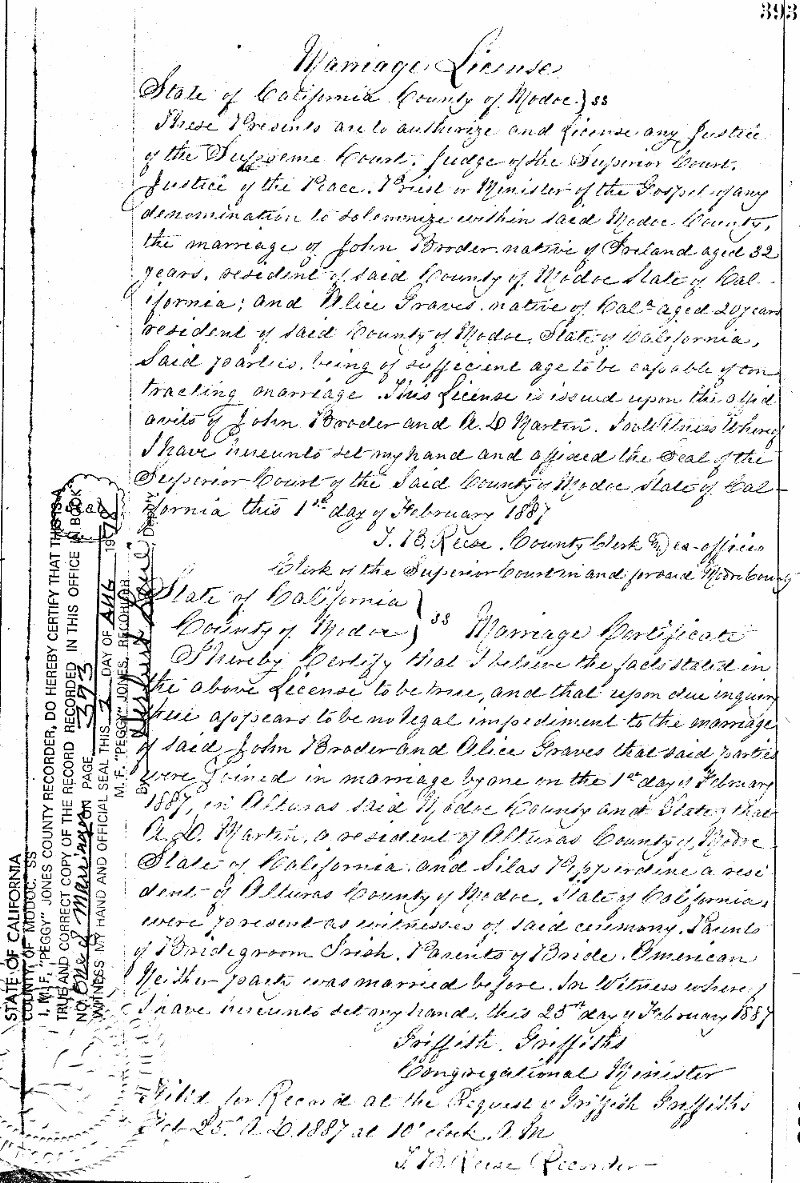 393
Marriage License
State of California County of Modoc } ss
These Presents are to authorize and License any Justice
of the Supreme Court, Judge of the Superior Court,
Justice of the Peace, Priest or Minister of the Gospel of any
denomination to solemnize within said Modoc County,
the marriage of John Broder native of Ireland aged 32
years, resident of said County of Modoc State of Cal-
ifornia; and Alice Graves native of Cala aged 20 years
resident of said County of Modoc, State of California,
Said parties being of sufficient age to be capable of con
tracting marriage. This License is issued upon the affid
avits of John Broder and A. D. Martin. In Witness Whereof
I have hereunto set my hand and affixed the Seal of the
Superior Court of the Said County of Modoc State of Cal-
ifornia this 1st day of February 1887
T. B. Reese. County Clerk and ex-officio
Clerk of the Superior Court in and for said Modoc County
State of California
County of Modoc } ss Marriage Certificate
I hereby Certify that I believe the facts stated in
the above License to be true, and that upon due inquiry
there appears to be no legal impediment to the marriage
of said John Broder and Alice Graves that said parties
were Joined in marriage by me on the 1st day of February
1887, in Alturas said Modoc County and State; that
A. D. Martin, a resident of Alturas County of Modoc
State of California and Silas Pepperdine a resi
dent of Alturas County of Modoc, State of California,
were present as witnesses of said ceremony. Parents
of Bridegroom Irish. Parents of Bride. American
Neither party was married before. In Witness whereof
I have hereunto set my hand, this 25th day of February 1887
Griffith Griffiths
Congregational Minister
Filed for Record at the Request of Griffith Griffiths
Feb 25th A D 1887 at 10 o'clock A M
T. B. Reese Recorder
STATE OF CALIFORNIA
COUNTY OF MODOC. SS
I, M. F. "PEGGY" JONES COUNTY RECORDER, DO HEREBY CERTIFY THAT THIS IS A
TRUE AND CORRECT COPY OF THE RECORD RECORDED IN THIS OFFICE IN BOOK
NO. One of Marriages ON PAGE 393
WITNESS MY HAND AND OFFICIAL SEAL THIS 2 DAY OF AUG 1978
M. F. "PEGGY" JONES, RECORDER
By Deputy
Seal